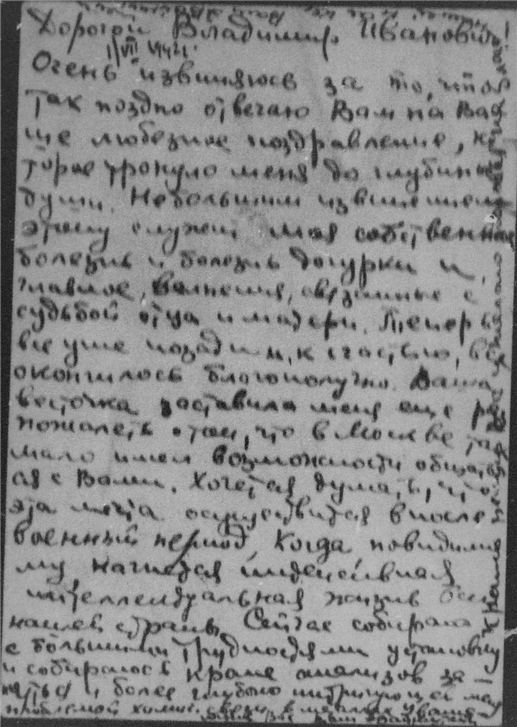 Дорогой Владимир Иванович!
1/VII 1942г.
Очень извиняюсь за то, что
так поздно отвечаю Вам на Ва
ше любезное поздравление, ко
торое тронуло меня до глубины
души. Небольшим извинением
этому служит моя собственная
болезнь и болезнь дочурки и,
главное, волнения, связанные с
судьбой отца и матери. Теперь
все уже позади и, к счастью, все
окончилось благополучно. Ваша
весточка заставила меня еще раз
пожалеть о том, что в Москве так
мало имел возможности общать
ся с Вами. Хочется думать, что
эта мечта осуществится в после
военный период, когда, повидимо
му, начнется интенсивная
интеллектуальная жизнь всей
нашей страны. Сейчас собираю
с большими трудностями установку
и собираюсь кроме анализов за-
няться и более глубоко интригующей меня
проблемой химич. связи в